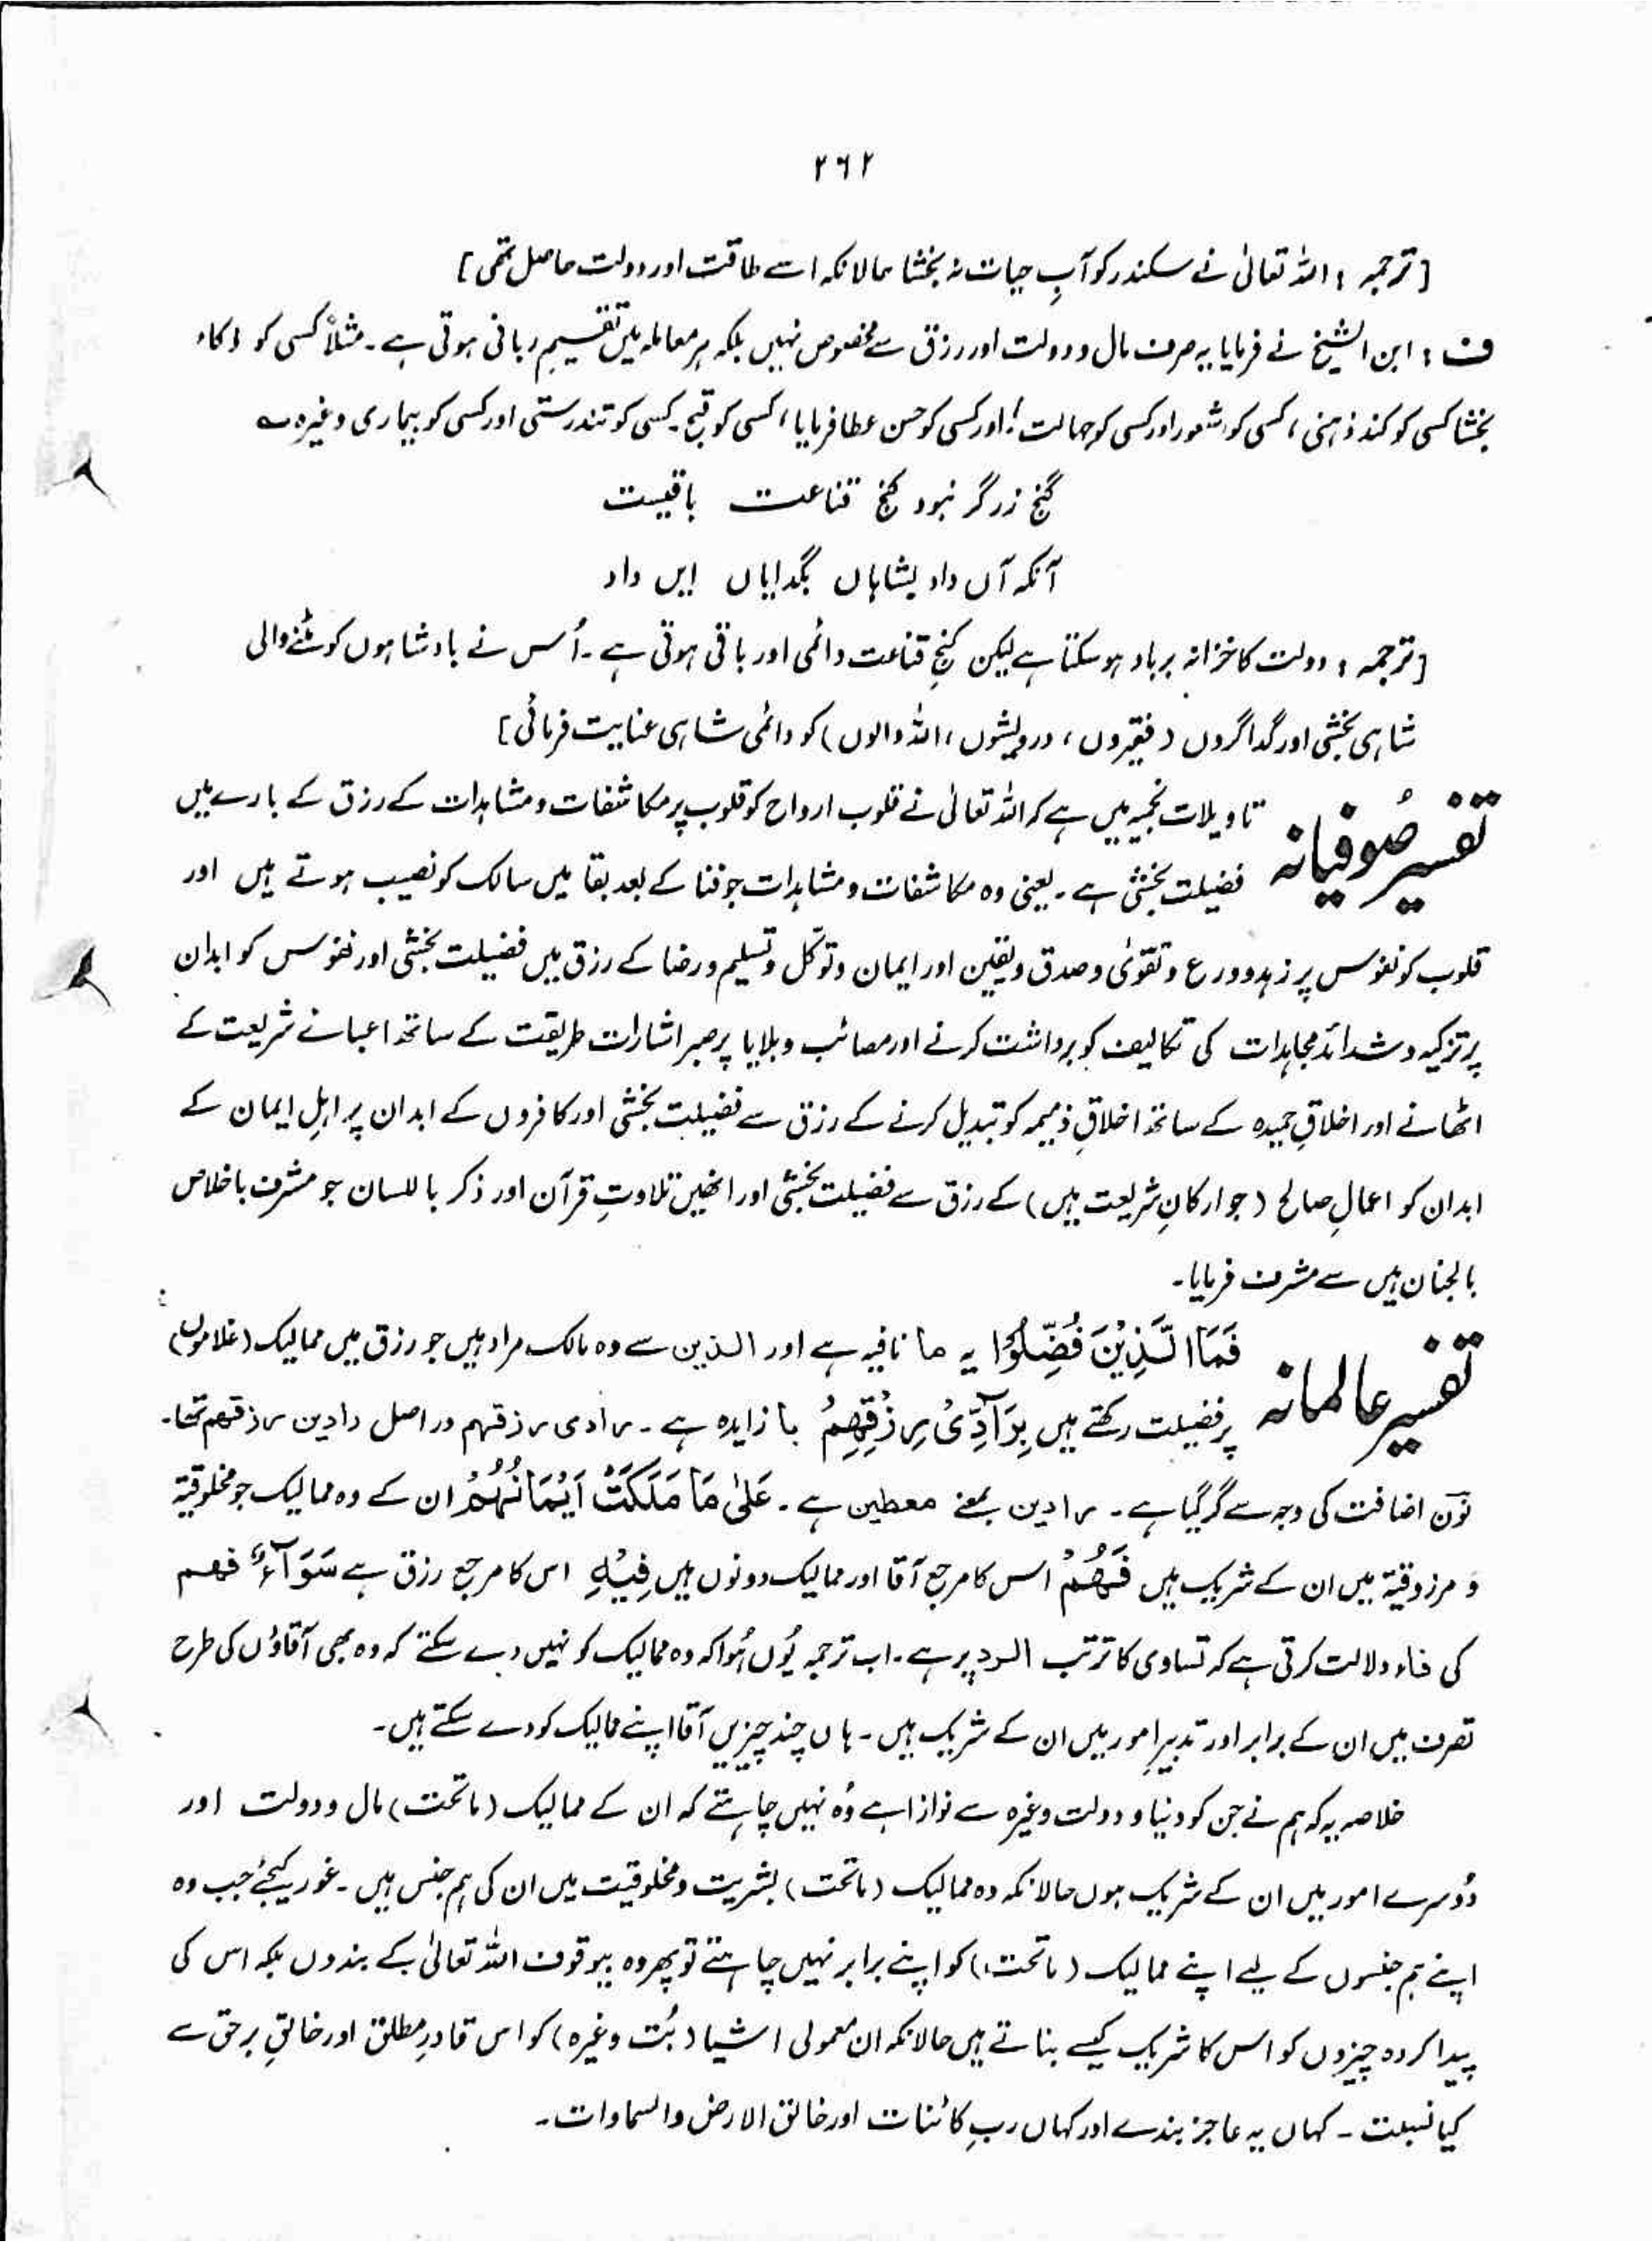 ۲۶۲
[ترجمہ : اللہ تعالیٰ نے سکندر کو آبِ حیات نہ بخشا حالانکہ اسے طاقت اور دولت حاصل تھی]
ف : ابن الشیخ نے فرمایا یہ صرف مال و دولت اور رزق سے مخصوص نہیں بلکہ ہر معاملہ میں تقسیمِ ربانی ہوتی ہے۔ مثلاً کسی کو ذکاء
بخشا کسی کو کند ذہنی، کسی کو شعور اور کسی کو جہالت، اور کسی کو حسن عطا فرمایا، کسی کو قبح۔ کسی کو تندرستی اور کسی کو بیماری وغیرہ ؎
گنج زر گر نبود کنج قناعت باقیست
آنکہ آں داد بشاہاں بگدایاں ایں داد
[ترجمہ : دولت کا خزانہ برباد ہو سکتا ہے لیکن کنجِ قناعت دائمی اور باقی ہوتی ہے۔ اُس نے بادشاہوں کو مٹنے والی
شاہی بخشی اور گداگروں (فقیروں، درویشوں، اللہ والوں) کو دائمی شاہی عنایت فرمائی]
تفسیر صُوفیانہ تاویلات نجمیہ میں ہے کہ اللہ تعالیٰ نے قلوب ارواح کو قلوب پر مکاشفات و مشاہدات کے رزق کے بارے میں
فضیلت بخشی ہے۔ یعنی وہ مکاشفات و مشاہدات جو فنا کے بعد بقا میں سالک کو نصیب ہوتے ہیں اور
قلوب کو نفوس پر زہد و ورع و تقوٰی و صدق و یقین اور ایمان و توکّل و تسلیم و رضا کے رزق میں فضیلت بخشی اور نفوس کو ابدان
پر تزکیہ و شدائد مجاہدات کی تکالیف کو برداشت کرنے اور مصائب و بلایا پر صبر اشارات طریقت کے ساتھ اعبائے شریعت کے
اٹھانے اور اخلاقِ حمیدہ کے ساتھ اخلاقِ ذمیمہ کو تبدیل کرنے کے رزق سے فضیلت بخشی اور کافروں کے ابدان پر اہلِ ایمان کے
ابدان کو اعمالِ صالح (جو ارکانِ شریعت ہیں) کے رزق سے فضیلت بخشی اور انھیں تلاوتِ قرآن اور ذکر باللسان جو مشرف باخلاص
بالجنان ہیں سے مشرف فرمایا۔
تفسیر عالمانہ فَمَا الَّذِيْنَ فُضِّلُوْا یہ ما نافیہ ہے اور الذین سے وہ مالک مراد ہیں جو رزق میں ممالیک (غلاموں)
پر فضیلت رکھتے ہیں بِرَآدِّیْ رِزْقِهِمْ با زایدہ ہے۔ رادی رزقہم در اصل رادین رزقہم تھا۔
نوؔن اضافت کی وجہ سے گر گیا ہے۔ رادین بمعنے معطین ہے۔ عَلٰی مَا مَلَكَتْ اَيْمَانُهُمْ ان کے وہ ممالیک جو مخلوقیۃ
و مرزوقیۃ میں ان کے شریک ہیں فَهُمْ اس کا مرجع آقا اور ممالیک دونوں ہیں فِيْهِ اس کا مرجع رزق ہے سَوَآءٌ فھم
کی فاء دلالت کرتی ہے کہ تساوی کا ترتب الرد پر ہے۔ اب ترجمہ یُوں ہُوا کہ وہ ممالیک کو نہیں دے سکتے کہ وہ بھی آقاؤں کی طرح
تصرف میں ان کے برابر اور تدبیرِ امور میں ان کے شریک ہیں۔ ہاں چند چیزیں آقا اپنے ممالیک کو دے سکتے ہیں۔
خلاصہ یہ کہ ہم نے جن کو دنیا و دولت وغیرہ سے نوازا ہے وُہ نہیں چاہتے کہ ان کے ممالیک (ماتحت) مال و دولت اور
دُوسرے امور میں ان کے شریک ہوں حالانکہ وہ ممالیک (ماتحت) بشریت و مخلوقیت میں ان کی ہم جنس ہیں۔ غور کیجئے جب وہ
اپنے ہم جنسوں کے لیے اپنے ممالیک (ماتحت) کو اپنے برابر نہیں چاہتے تو پھر وہ بیوقوف اللہ تعالیٰ کے بندوں بلکہ اس کی
پیدا کردہ چیزوں کو اس کا شریک کیسے بناتے ہیں حالانکہ ان معمولی اشیا (بُت وغیرہ) کو اس قادرِ مطلق اور خالقِ برحق سے
کیا نسبت۔ کہاں یہ عاجز بندے اور کہاں ربِ کائنات اور خالق الارض والسماوات۔